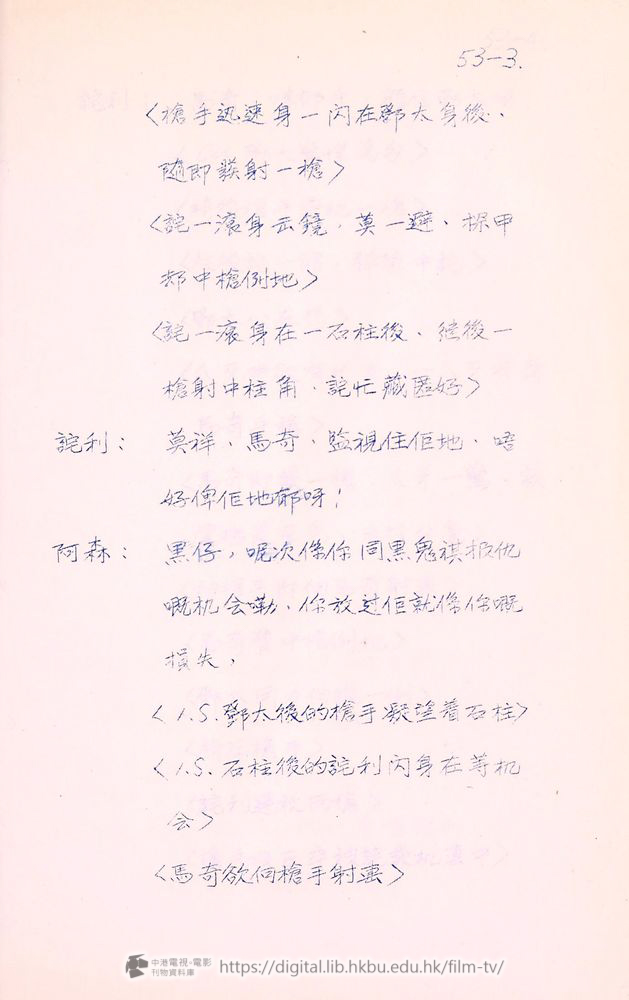 53-3.
〈槍手迅速身一闪在鄧太身後、
随即發射一槍〉
〈詑一滚身云鏡，莫一避、探甲
却中槍倒地〉
〈詑一滚身在一石柱後、继後一
槍射中柱角，詑忙藏匿好〉
詑利： 莫祥、馬奇、監視住佢地、唔
好俾佢地郁呀！
阿森： 黑仔，呢次係你同黑鬼祺报仇
嘅机会嘞、你放过佢就係你嘅
損失，
〈I.S.鄧太後的槍手凝望着石柱〉
〈I.S.石柱後的詑利闪身在等机
会〉
〈馬奇欲向槍手射擊〉
中港電視·電影
刊物資料庫
https://digital.lib.hkbu.edu.hk/film-tv/